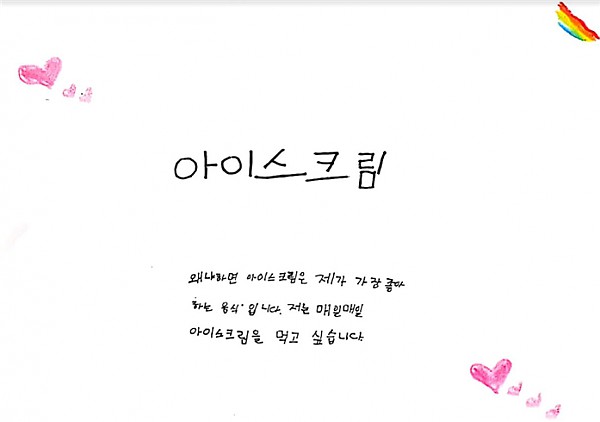 아이스크림
왜냐하면 아이스크림은 제가 가장 좋아
하는 음식 입니다. 저는 매일매일
아이스크림을 먹고 싶습니다